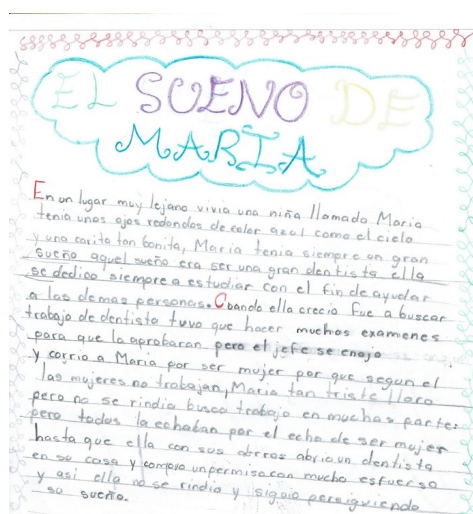 EL SUENO DE
MARIA
En un lugar muy lejano vivia una niña llamada Maria
tenia unos ojos redondos de color azul como el cielo
y una carita tan bonita, Maria tenia siempre un gran
sueño aquel sueño era ser una gran dentista ella
se dedico siempre a estudiar con el fin de ayudar
a las demas personas. Cuando ella crecio fue a buscar
trabajo de dentista tuvo que hacer muchos examenes
para que la aprobaran pero el jefe se enojo
y corrio a Maria por ser mujer por que segun el
las mujeres no trabajan, Maria tan triste lloro
pero no se rindio busco trabajo en muchas partes
pero todos la echaban por el echo de ser mujer
hasta que ella con sus aorros abrio un dentista
en su casa y compro un permiso con mucho esfuerso
y asi ella no se rindio y siguio persiguiendo
su sueño.